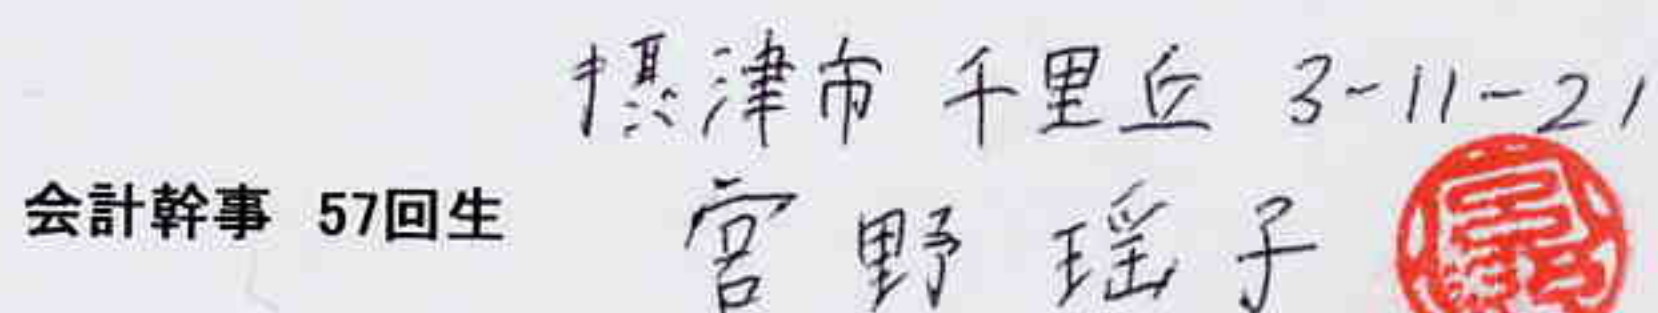 摂津市 千里丘 3-11-21
会計幹事 57回生 宮野 瑶子